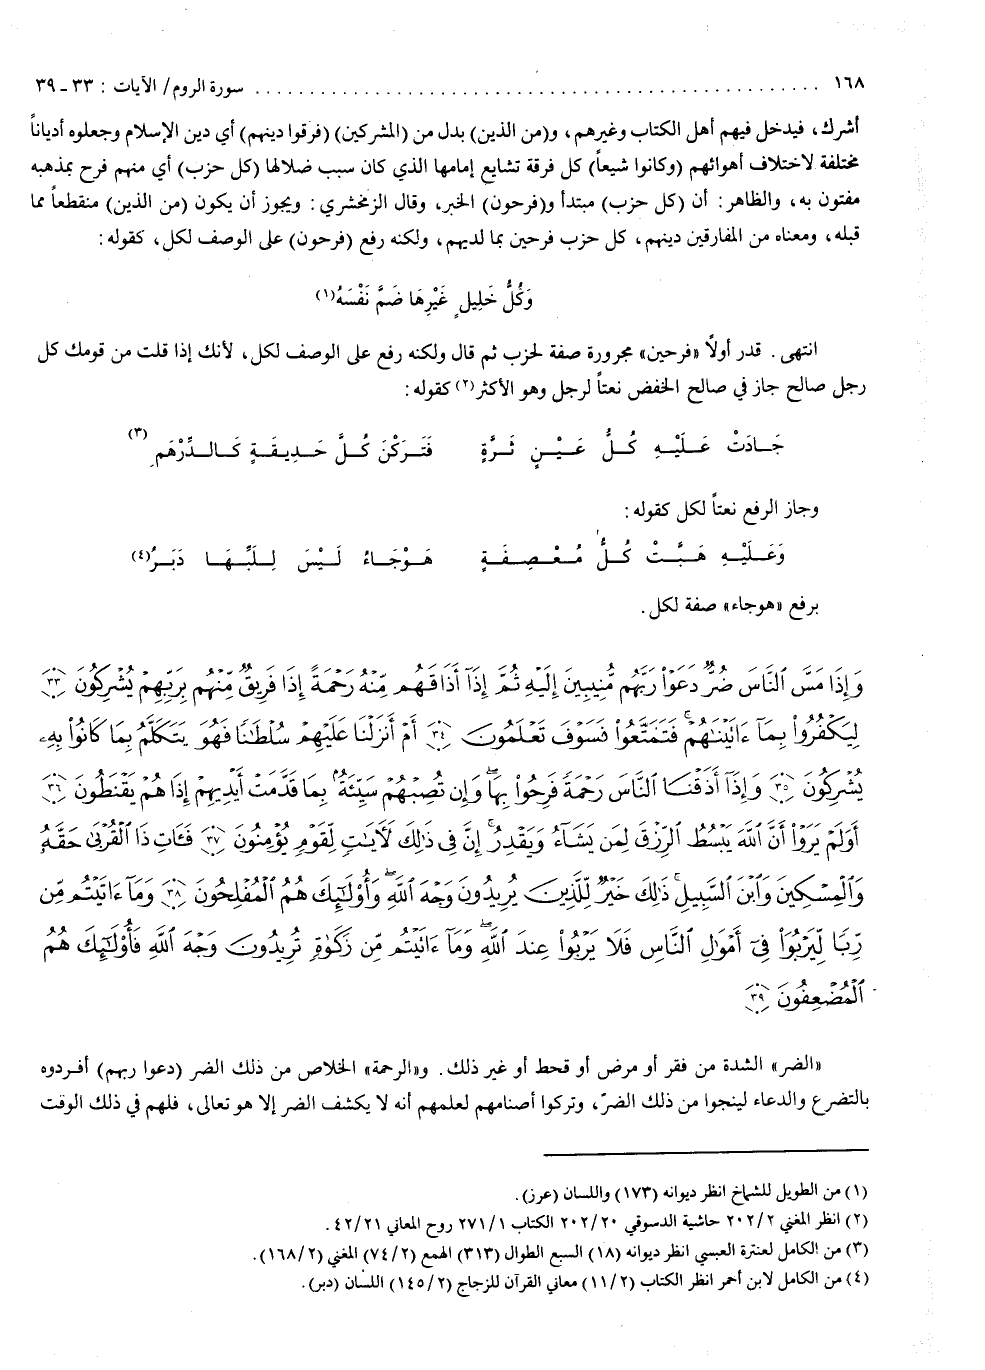 ١٦٨ ........................................ سورة الروم/ الآيات : ٣٣ ـ ٣٩
أشرك، فيدخل فيهم أهل الكتاب وغيرهم، و(من الذين) بدل من (المشركين) (فرقوا دينهم) أي دين الإسلام وجعلوه أدياناً
مختلفة لاختلاف أهوائهم (وكانوا شيعاً) كل فرقة تشايع إمامها الذي كان سبب ضلالها (كل حزب) أي منهم فرح بمذهبه
مفتون به، والظاهر: أن (كل حزب) مبتدأ و(فرحون) الخبر، وقال الزمخشري: ويجوز أن يكون (من الذين) منقطعاً مما
قبله، ومعناه من المفارقين دينهم، كل حزب فرحين بما لديهم، ولكنه رفع (فرحون) على الوصف لكل، كقوله:
وَكُلُّ خَلِيلٍ غَيْرِهَا ضَمَّ نَفْسَهُ(١)
انتهى. قدر أولاً «فرحين» مجرورة صفة لحزب ثم قال ولكنه رفع على الوصف لكل، لأنك إذا قلت من قومك كل
رجل صالح جاز في صالح الخفض نعتاً لرجل وهو الأكثر(٢) كقوله:
جَـادَتْ عَـلَيْـهِ كُـلُّ عَـيْـنٍ ثَـرَّةٍ فَتَـرَكْنَ كُـلَّ حَـدِيـقَـةٍ كَـالـدِّرْهَمِ(٣)
وجاز الرفع نعتاً لكل كقوله:
وَعَـلَيْـهِ هَـبَّـتْ كُـلُّ مُـعْـصِـفَـةٍ هَـوْجَـاءُ لَـيْسَ لِـلُبِّـهَـا دَبَـرُ(٤)
برفع «هوجاء» صفة لكل.
وَإِذَا مَسَّ ٱلنَّاسَ ضُرٌّ دَعَوْا۟ رَبَّهُم مُّنِيبِينَ إِلَيْهِ ثُمَّ إِذَآ أَذَاقَهُم مِّنْهُ رَحْمَةً إِذَا فَرِيقٌ مِّنْهُم بِرَبِّهِمْ يُشْرِكُونَ ٣٣
لِيَكْفُرُوا۟ بِمَآ ءَاتَيْنَٰهُمْ ۚ فَتَمَتَّعُوا۟ فَسَوْفَ تَعْلَمُونَ ٣٤ أَمْ أَنزَلْنَا عَلَيْهِمْ سُلْطَٰنًا فَهُوَ يَتَكَلَّمُ بِمَا كَانُوا۟ بِهِۦ
يُشْرِكُونَ ٣٥ وَإِذَآ أَذَقْنَا ٱلنَّاسَ رَحْمَةً فَرِحُوا۟ بِهَا ۖ وَإِن تُصِبْهُمْ سَيِّئَةٌۢ بِمَا قَدَّمَتْ أَيْدِيهِمْ إِذَا هُمْ يَقْنَطُونَ ٣٦
أَوَلَمْ يَرَوْا۟ أَنَّ ٱللَّهَ يَبْسُطُ ٱلرِّزْقَ لِمَن يَشَآءُ وَيَقْدِرُ ۚ إِنَّ فِى ذَٰلِكَ لَءَايَٰتٍ لِّقَوْمٍ يُؤْمِنُونَ ٣٧ فَـَٔاتِ ذَا ٱلْقُرْبَىٰ حَقَّهُۥ
وَٱلْمِسْكِينَ وَٱبْنَ ٱلسَّبِيلِ ۚ ذَٰلِكَ خَيْرٌ لِّلَّذِينَ يُرِيدُونَ وَجْهَ ٱللَّهِ ۖ وَأُو۟لَٰٓئِكَ هُمُ ٱلْمُفْلِحُونَ ٣٨ وَمَآ ءَاتَيْتُم مِّن
رِّبًا لِّيَرْبُوَا۟ فِىٓ أَمْوَٰلِ ٱلنَّاسِ فَلَا يَرْبُوا۟ عِندَ ٱللَّهِ ۖ وَمَآ ءَاتَيْتُم مِّن زَكَوٰةٍ تُرِيدُونَ وَجْهَ ٱللَّهِ فَأُو۟لَٰٓئِكَ هُمُ
ٱلْمُضْعِفُونَ ٣٩
«الضر» الشدة من فقر أو مرض أو قحط أو غير ذلك. و«الرحمة» الخلاص من ذلك الضر (دعوا ربهم) أفـردوه
بالتضرع والدعاء لينجوا من ذلك الضرّ، وتركوا أصنامهم لعلمهم أنه لا يكشف الضر إلا هو تعالى، فلهم في ذلك الوقت
(١) من الطويل للشماخ انظر ديوانه (١٧٣) واللسان (عرز).
(٢) انظر المغني ٢٠٢/٢ حاشية الدسوقي ٢٠٢/٢٠ الكتاب ٢٧١/١ روح المعاني ٤٢/٢١.
(٣) من الكامل لعنترة العبسي انظر ديوانه (١٨) السبع الطوال (٣١٣) الهمع (٧٤/٢) المغني (١٦٨/٢).
(٤) من الكامل لابن أحمر انظر الكتاب (١١/٢) معاني القرآن للزجاج (١٤٥/٢) اللسان (دبر).